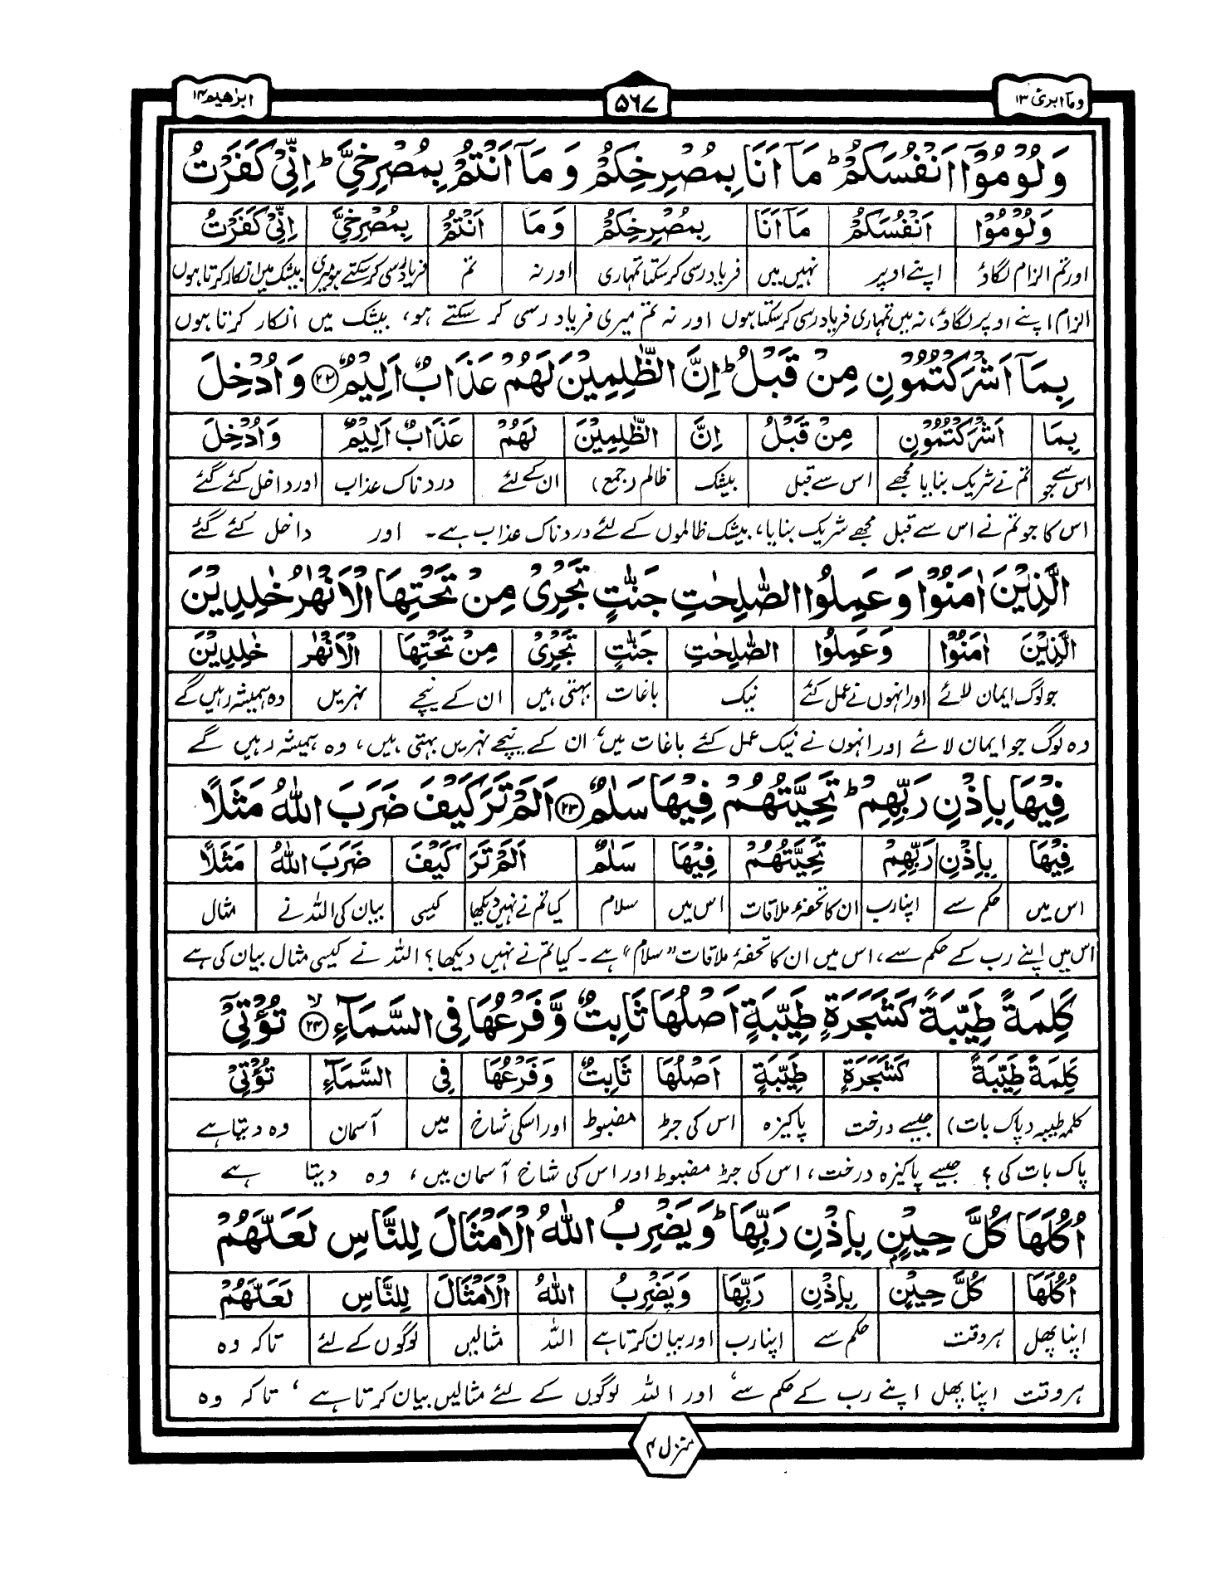 ابرٰهيم ۱۴
۵۶۷
ومآ ابرئ ۱۳
وَلُوْمُوْٓا اَنْفُسَكُمْ ؕ مَآ اَنَا بِمُصْرِخِكُمْ وَ مَآ اَنْتُمْ بِمُصْرِخِيَّ ؕ اِنِّيْ كَفَرْتُ
وَلُوْمُوْٓا اَنْفُسَكُمْ مَآ اَنَا بِمُصْرِخِكُمْ وَمَا اَنْتُمْ بِمُصْرِخِيَّ اِنِّيْ كَفَرْتُ
اور تم الزام لگاؤ اپنے اوپر نہیں میں فریاد رسی کرسکتا تمہاری اور نہ تم فریاد رسی کرسکتے ہو میری بیشک میں انکار کرتا ہوں
الزام اپنے اوپر لگاؤ، نہ میں تمہاری فریاد رسی کرسکتا ہوں اور نہ تم میری فریاد رسی کر سکتے ہو، بیشک میں انکار کرتا ہوں
بِمَآ اَشْرَكْتُمُوْنِ مِنْ قَبْلُ ؕ اِنَّ الظّٰلِمِيْنَ لَهُمْ عَذَابٌ اَلِيْمٌ ﴿۲۲﴾ وَاُدْخِلَ
بِمَا اَشْرَكْتُمُوْنِ مِنْ قَبْلُ اِنَّ الظّٰلِمِيْنَ لَهُمْ عَذَابٌ اَلِيْمٌ وَاُدْخِلَ
اس سے جو تم نے شریک بنایا مجھے اس سے قبل بیشک ظالم (جمع) ان کے لئے دردناک عذاب اور داخل کئے گئے
اس کا جو تم نے اس سے قبل مجھے شریک بنایا، بیشک ظالموں کے لئے دردناک عذاب ہے۔ اور داخل کئے گئے
الَّذِيْنَ اٰمَنُوْا وَعَمِلُوا الصّٰلِحٰتِ جَنّٰتٍ تَجْرِيْ مِنْ تَحْتِهَا الْاَنْهٰرُ خٰلِدِيْنَ
الَّذِيْنَ اٰمَنُوْا وَعَمِلُوا الصّٰلِحٰتِ جَنّٰتٍ تَجْرِيْ مِنْ تَحْتِهَا الْاَنْهٰرُ خٰلِدِيْنَ
جو لوگ ایمان لائے اور انہوں نے عمل کئے نیک باغات بہتی ہیں ان کے نیچے نہریں وہ ہمیشہ رہیں گے
وہ لوگ جو ایمان لائے اور انہوں نے نیک عمل کئے باغات میں، ان کے نیچے نہریں بہتی ہیں، وہ ہمیشہ رہیں گے
فِيْهَا بِاِذْنِ رَبِّهِمْ ؕ تَحِيَّتُهُمْ فِيْهَا سَلٰمٌ ﴿۲۳﴾ اَلَمْ تَرَ كَيْفَ ضَرَبَ اللّٰهُ مَثَلًا
فِيْهَا بِاِذْنِ رَبِّهِمْ تَحِيَّتُهُمْ فِيْهَا سَلٰمٌ اَلَمْ تَرَ كَيْفَ ضَرَبَ اللّٰهُ مَثَلًا
اس میں حکم سے اپنا رب ان کا تحفۂ ملاقات اس میں سلام کیا تم نے نہیں دیکھا کیسی بیان کی اللہ نے مثال
اس میں اپنے رب کے حکم سے، اس میں ان کا تحفۂ ملاقات "سلام" ہے۔ کیا تم نے نہیں دیکھا؟ اللہ نے کیسی مثال بیان کی ہے
كَلِمَةً طَيِّبَةً كَشَجَرَةٍ طَيِّبَةٍ اَصْلُهَا ثَابِتٌ وَّفَرْعُهَا فِي السَّمَآءِ ﴿۲۴﴾ۙ تُؤْتِيْٓ
كَلِمَةً طَيِّبَةً كَشَجَرَةٍ طَيِّبَةٍ اَصْلُهَا ثَابِتٌ وَفَرْعُهَا فِي السَّمَآءِ تُؤْتِيْٓ
کلمہ طیبہ (پاک بات) جیسے درخت پاکیزہ اس کی جڑ مضبوط اور اسکی شاخ میں آسمان وہ دیتا ہے
پاک بات کی؟ جیسے پاکیزہ درخت، اس کی جڑ مضبوط اور اس کی شاخ آسمان میں، وہ دیتا ہے
اُكُلَهَا كُلَّ حِيْنٍۢ بِاِذْنِ رَبِّهَا ؕ وَيَضْرِبُ اللّٰهُ الْاَمْثَالَ لِلنَّاسِ لَعَلَّهُمْ
اُكُلَهَا كُلَّ حِيْنٍۢ بِاِذْنِ رَبِّهَا وَيَضْرِبُ اللّٰهُ الْاَمْثَالَ لِلنَّاسِ لَعَلَّهُمْ
اپنا پھل ہر وقت حکم سے اپنا رب اور بیان کرتا ہے اللہ مثالیں لوگوں کے لئے تاکہ وہ
ہر وقت اپنا پھل اپنے رب کے حکم سے، اور اللہ لوگوں کے لئے مثالیں بیان کرتا ہے، تاکہ وہ
منزل ۴